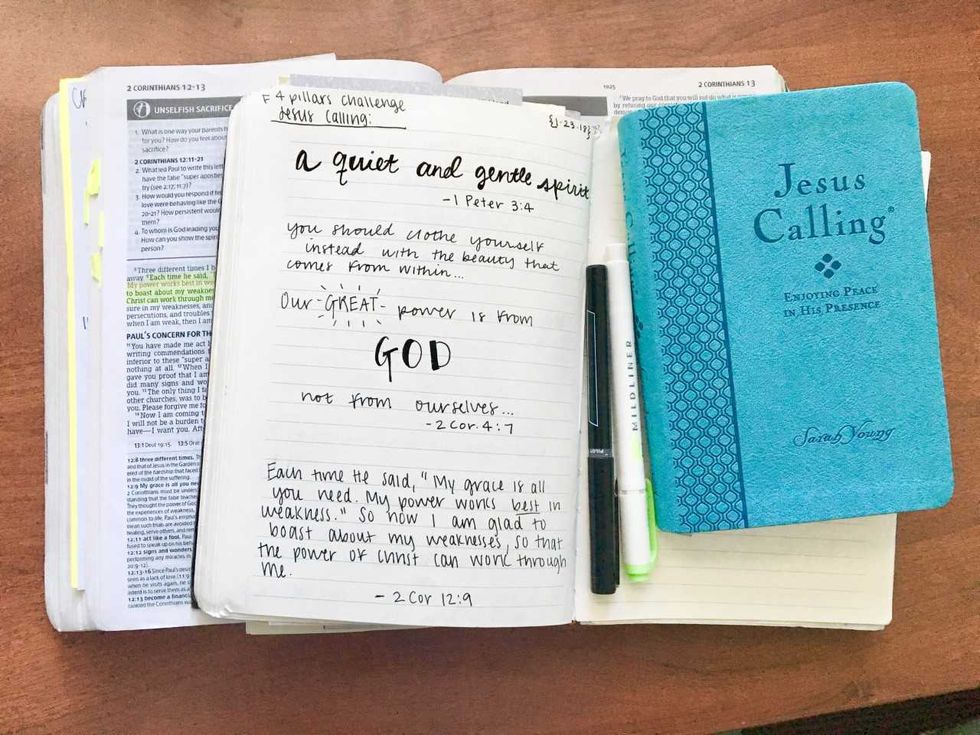 2 CORINTHIANS 12-13
UNSELFISH SACRIFICE
1. What is one way your parents h
for you? How do you feel abou
sacrifice?
2 CORINTHIANS 12:11-21
2. What led Paul to write this let
have the false "super apos
try (see 2:17; 11:7)?
3. How would you respond if
love were behaving like the
20-21? How persistent would
them?
4. To whom is God leading you
How can you show the spiri
person?
Three different times I
away. Each time he said,
My power works best in w
to boast about my weakne
Christ can work through m
sure in my weaknesses, an
persecutions, and troubles
when I am weak, then I am
PAUL'S CONCERN FOR TH
You have made me act
writing commendations
inferior to these "super a
nothing at all. When I
gave you proof that I am
did many signs and wo
you. The only thing I f
other churches, was to b
you. Please forgive me fo
Now I am coming t
I will not be a burden
have—I want you. Aft
13:1 Deut 19:15.
12:8 three different times.
12:9 My grace is all you nee
12:11 act like a fool.
12:12 signs and wonders,
12:13 become a financi
4 pillars challenge
Jesus Calling:
a quiet and gentle spirit
- 1 Peter 3:4
you should clothe yourself
instead with the beauty that
comes from within...
Our GREAT power is from
GOD
not from ourselves...
- 2 Cor. 4:7
Each time He said, "My grace is all
you need. My power works best in
weakness." So now I am glad to
boast about my weaknesses, so that
the power of Christ can work through
me.
- 2 Cor 12:9
1025
2 CORINTHIANS 13
We pray to God that you will not do what is
MILDLINER
Jesus
Calling®
ENJOYING PEACE
IN HIS PRESENCE
Sarah Young